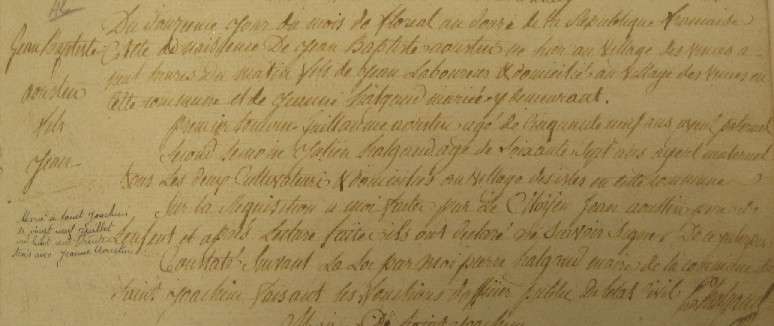 Jean Baptiste
aoustin
fils
Jean
Du douzieme Jour du mois de floreal an douze de la Republique francaise
Acte de naissance De Jean Baptiste aoustin né hier au village des
sept heures du matin fils de Jean Laboureur & domicilié au village des en
cette commune et de halgand mariés y demeurant.
premier temoin Guillaume aoustin agé de Cinquante neuf ans ayeul paternel
Second temoin halgand agé de Soixante Sept ans ayeul maternel
tous Les deux Cultivateurs & domiciliés au village des en cette commune
Sur la Requisition a moi faite par Le Citoyen Jean aoustin pere de
Lenfent et apres Lecture faite ils ont declaré ne Savoir Signer
Constaté Suivant La Loi par moi pierre halgand maire de la commune de
Saint Joachim faisant les fonctions dofficier public de letat civil
halgand
Marié à Saint Joachim
le vingt neuf juillet
mil huit cent trente
trois avec Jeanne